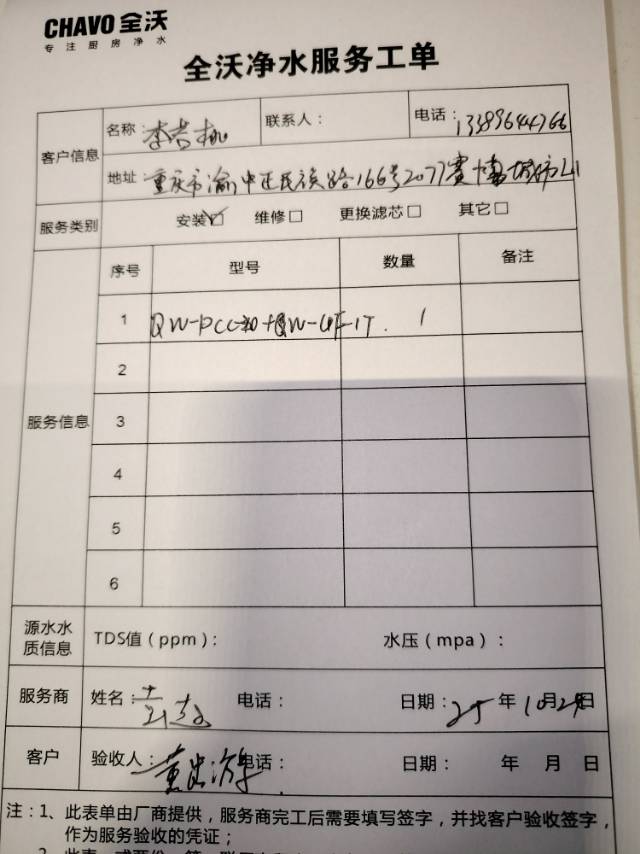 CHAVO 全沃
专注厨房净水
全沃净水服务工单
客户信息
名称: 李
联系人:
电话: 13389644766
地址 重庆市渝中区民族路166号2077赛博
服务类别
安装☑ 维修□ 更换滤芯□ 其它□
服务信息
序号 型号 数量 备注
1 1
2
3
4
5
6
源水水质信息
TDS值(ppm): 水压(mpa):
服务商
姓名: 电话: 日期: 25年10月29日
客户
验收人: 董 电话: 日期: 年 月 日
注:1、此表单由厂商提供,服务商完工后需要填写签字,并找客户验收签字,
作为服务验收的凭证;